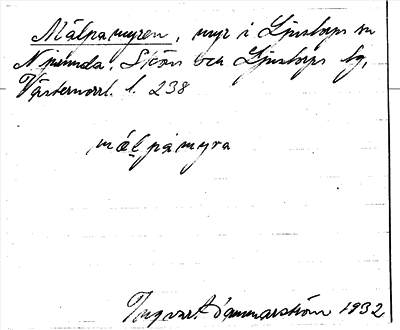 Mälpamyren, myr i Ljustorps sn
Njurunda, Sköns och Ljustorps tg,
Västernorrl. l. 238
mälpamyra
Ingvar Hammarström 1932